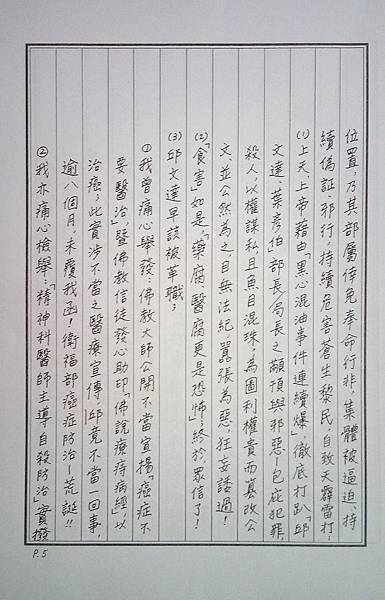 位置，乃其部屬倖免奉命行非，集體被逼迫、持
續偽証邪行，持續危害蒼生黎民，自致天霹雷打：
(1)上天、上帝藉由「黑心混油事件連續爆」，徹底打趴「邱
文達、葉彥伯」部長/局長之顢頇與邪惡—包庇犯罪，
殺人，以權謀私且魚目混珠，為圖利權貴而篡改公
文、並公然為之，目無法紀、囂張為惡，狂妄諉過！
(2)「食害」如是，「藥腐、醫腐更是恐怖」；終於眾信了！
(3)邱文達早該被革職；
①我曾痛心舉發「佛教大師公開不當宣揚「癌症不
要醫治」暨佛教信徒發心助印「佛說療痔病經」，以
治癌；此實涉不當之醫療宣傳，邱竟不當一回事，
逾八個月，未覆我函！衛福部癌症防治—荒誕!!
②我亦痛心檢舉：「精神科醫師主導自殺防治」實撥
P.5